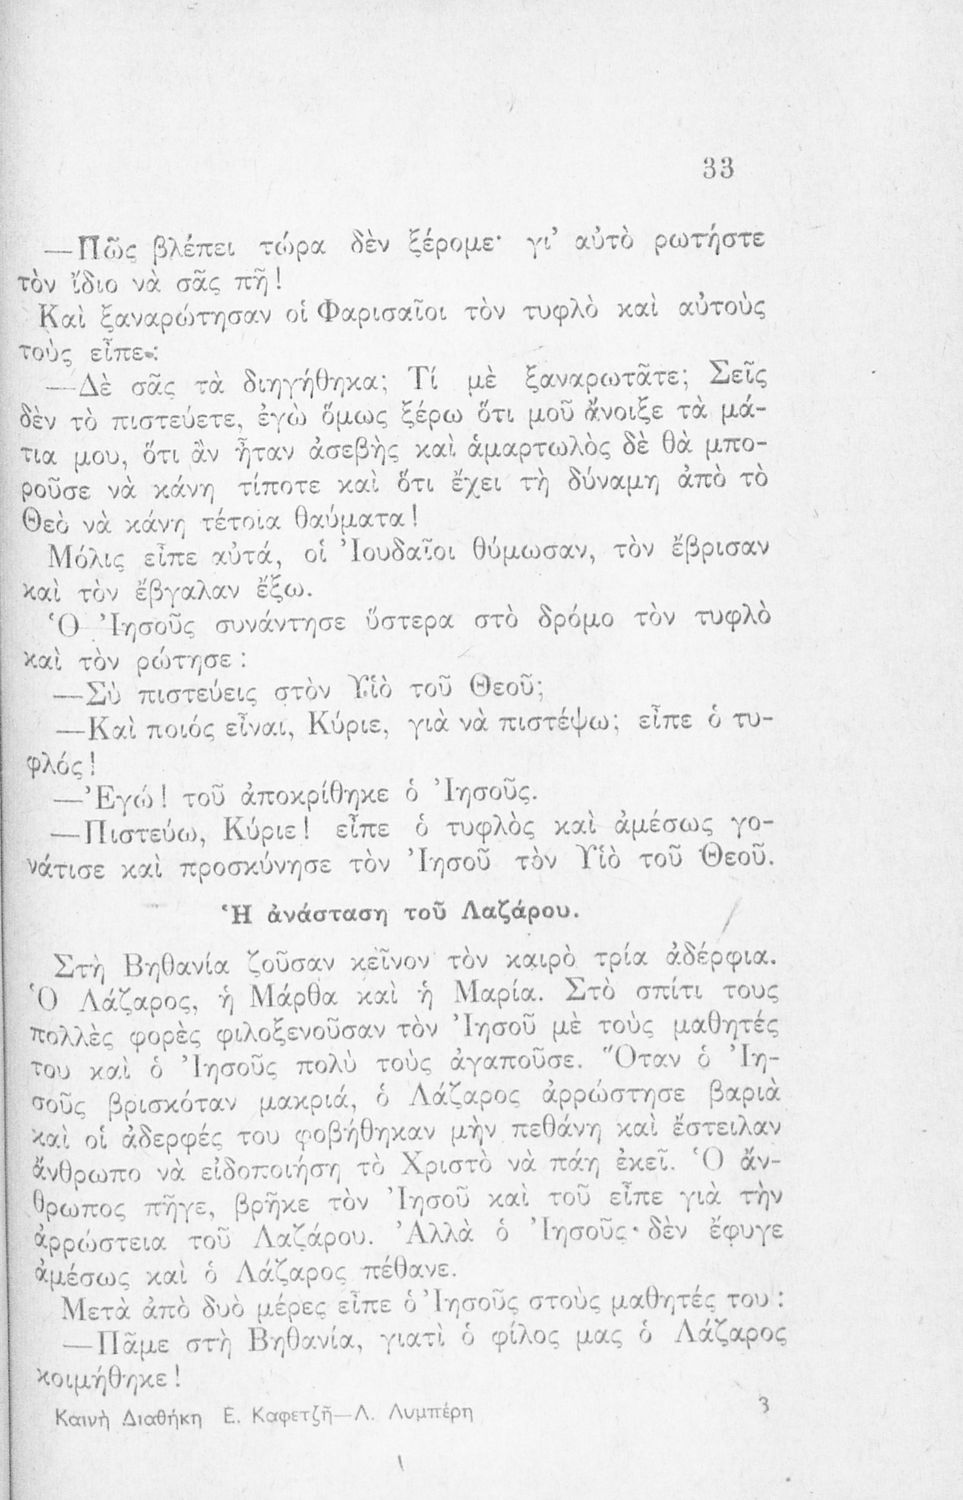 33
—Πῶς βλέπει τώρα δὲν ξέρομε· γι’ αὐτὸ ρωτήστε
τὸν ἴδιο νὰ σᾶς πῆ!
Καὶ ξαναρώτησαν οἱ Φαρισαῖοι τὸν τυφλὸ καὶ αὐτοὺς
τοὺς εἶπε:
—Δὲ σᾶς τὰ διηγήθηκα; Τί μὲ ξαναρωτᾶτε; Σεῖς
δὲν τὸ πιστεύετε, ἐγὼ ὅμως ξέρω ὅτι μοῦ ἄνοιξε τὰ μά-
τια μου, ὅτι ἂν ἦταν ἀσεβὴς καὶ ἁμαρτωλὸς δὲ θὰ μπο-
ροῦσε νὰ κάνη τίποτε καὶ ὅτι ἔχει τὴ δύναμη ἀπὸ τὸ
Θεὸ νὰ κάνη τέτοια θαύματα!
Μόλις εἶπε αὐτά, οἱ Ἰουδαῖοι θύμωσαν, τὸν ἔβρισαν
καὶ τὸν ἔβγαλαν ἔξω.
Ὁ Ἰησοῦς συνάντησε ὕστερα στὸ δρόμο τὸν τυφλὸ
καὶ τὸν ρώτησε:
—Σὺ πιστεύεις στὸν Υἱὸ τοῦ Θεοῦ;
—Καὶ ποιός εἶναι, Κύριε, γιὰ νὰ πιστέψω; εἶπε ὁ τυ-
φλός!
—Ἐγώ! τοῦ ἀποκρίθηκε ὁ Ἰησοῦς.
—Πιστεύω, Κύριε! εἶπε ὁ τυφλὸς καὶ ἀμέσως γο-
νάτισε καὶ προσκύνησε τὸν Ἰησοῦ τὸν Υἱὸ τοῦ Θεοῦ.
Ἡ ἀνάσταση τοῦ Λαζάρου.
Στὴ Βηθανία ζοῦσαν κεῖνον τὸν καιρὸ τρία ἀδέρφια.
Ὁ Λάζαρος, ἡ Μάρθα καὶ ἡ Μαρία. Στὸ σπίτι τους
πολλὲς φορὲς φιλοξενοῦσαν τὸν Ἰησοῦ μὲ τοὺς μαθητές
του καὶ ὁ Ἰησοῦς πολὺ τοὺς ἀγαποῦσε. Ὅταν ὁ Ἰη-
σοῦς βρισκόταν μακριά, ὁ Λάζαρος ἀρρώστησε βαριὰ
καὶ οἱ ἀδερφές του φοβήθηκαν μὴν πεθάνη καὶ ἔστειλαν
ἄνθρωπο νὰ εἰδοποιήση τὸ Χριστὸ νὰ πάη ἐκεῖ. Ὁ ἄν-
θρωπος πῆγε, βρῆκε τὸν Ἰησοῦ καὶ τοῦ εἶπε γιὰ τὴν
ἀρρώστεια τοῦ Λαζάρου. Ἀλλὰ ὁ Ἰησοῦς· δὲν ἔφυγε
ἀμέσως καὶ ὁ Λάζαρος πέθανε.
Μετὰ ἀπὸ δυὸ μέρες εἶπε ὁ Ἰησοῦς στοὺς μαθητές του:
—Πᾶμε στὴ Βηθανία, γιατὶ ὁ φίλος μας ὁ Λάζαρος
κοιμήθηκε!
Καινὴ Διαθήκη Ε. Καφετζῆ—Λ. Λυμπέρη 3